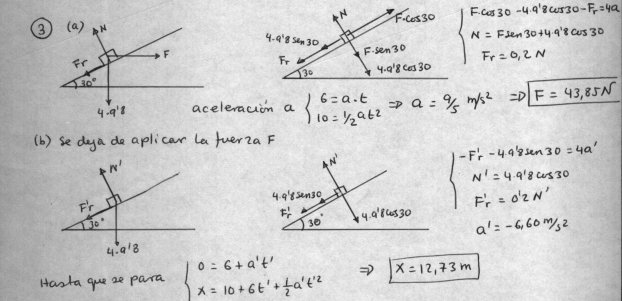 3 (a)
N
F
Fr
30°
4.9'8
N
F.cos30
4.9'8 sen30
Fr
F.sen30
30
4.9'8 cos30
F.cos30 - 4.9'8 sen30 - Fr = 4a
N = Fsen30 + 4.9'8 cos30
Fr = 0,2 N
aceleración a { 6 = a.t
10 = 1/2 at2 ⇒ a = 9/5 m/s² ⇒ F = 43,85N
(b) Se deja de aplicar la fuerza F
N'
F'r
30°
4.9'8
N'
4.9'8 sen30
F'r
30°
4.9'8 cos30
-F'r - 4.9'8 sen30 = 4a'
N' = 4.9'8 cos30
F'r = 0'2 N'
a' = -6,60 m/s2
Hasta que se para { 0 = 6 + a't'
x = 10 + 6t' + 1/2 a't'2 ⇒ X = 12,73 m